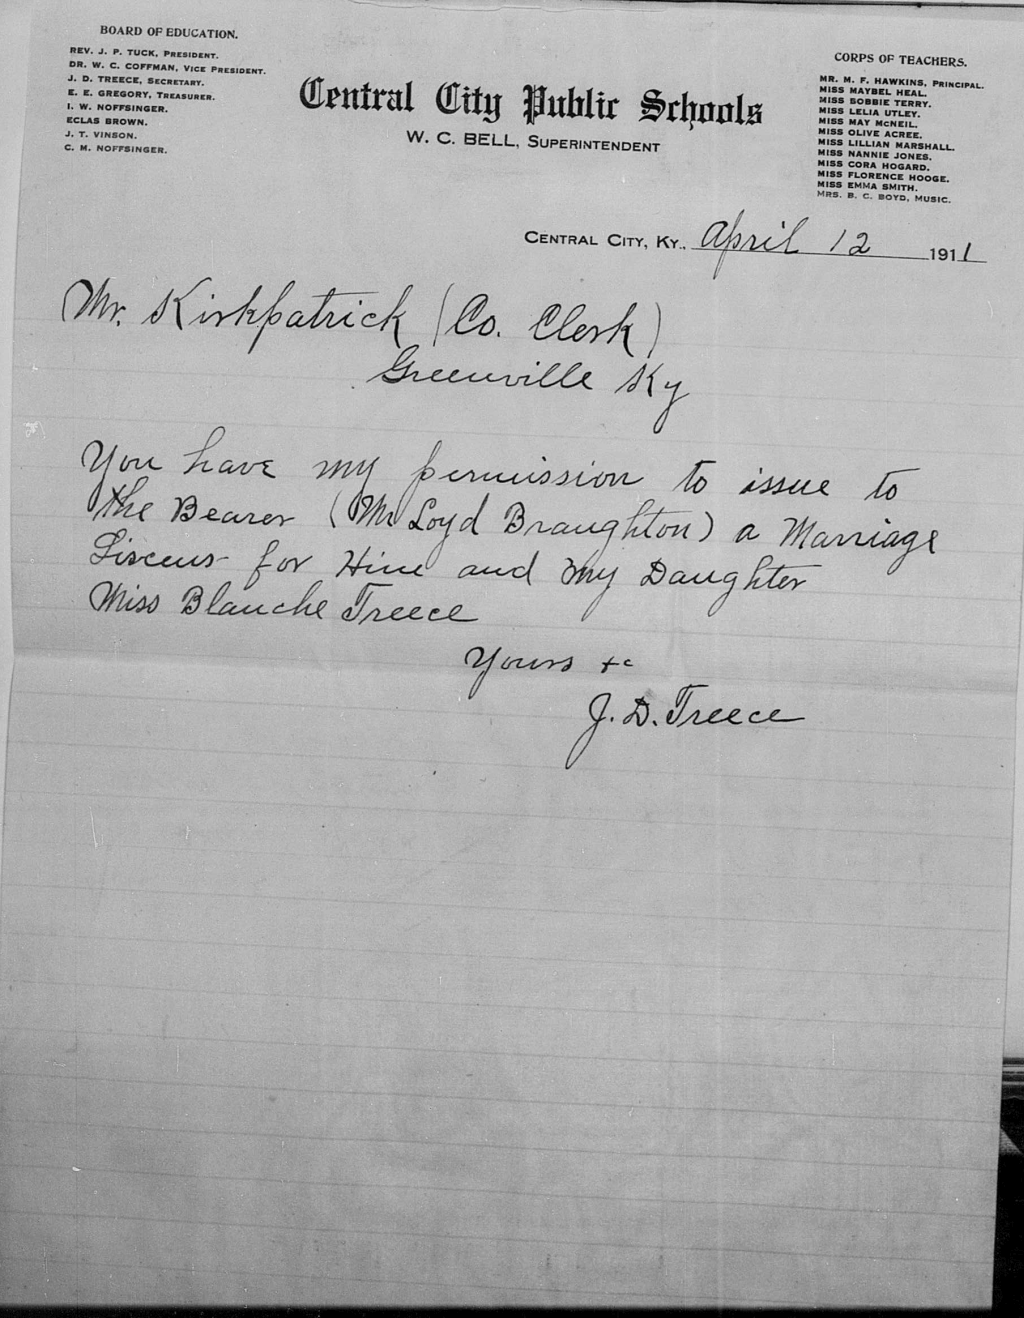 BOARD OF EDUCATION.
REV. J. P. TUCK, PRESIDENT.
DR. W. C. COFFMAN, VICE PRESIDENT.
J. D. TREECE, SECRETARY.
E. E. GREGORY, TREASURER.
I. W. NOFFSINGER.
ECLAS BROWN.
J. T. VINSON.
C. M. NOFFSINGER.
Central City Public Schools
W. C. BELL, SUPERINTENDENT
CORPS OF TEACHERS.
MR. M. F. HAWKINS, PRINCIPAL.
MISS MAYBEL HEAL.
MISS BOBBIE TERRY.
MISS LELIA UTLEY.
MISS MAY McNEIL.
MISS OLIVE ACREE.
MISS LILLIAN MARSHALL.
MISS NANNIE JONES.
MISS CORA HOGARD.
MISS FLORENCE HOOGE.
MISS EMMA SMITH.
MRS. B. C. BOYD, MUSIC.
CENTRAL CITY, KY., April 12 1911
Mr. Kirkpatrick (Co. Clerk)
Greenville Ky
You have my permission to issue to
the Bearer (Mr Loyd Braughton) a Marriage
Liscens for Him and my Daughter
Miss Blanche Treece
Yours &c
J. D. Treece